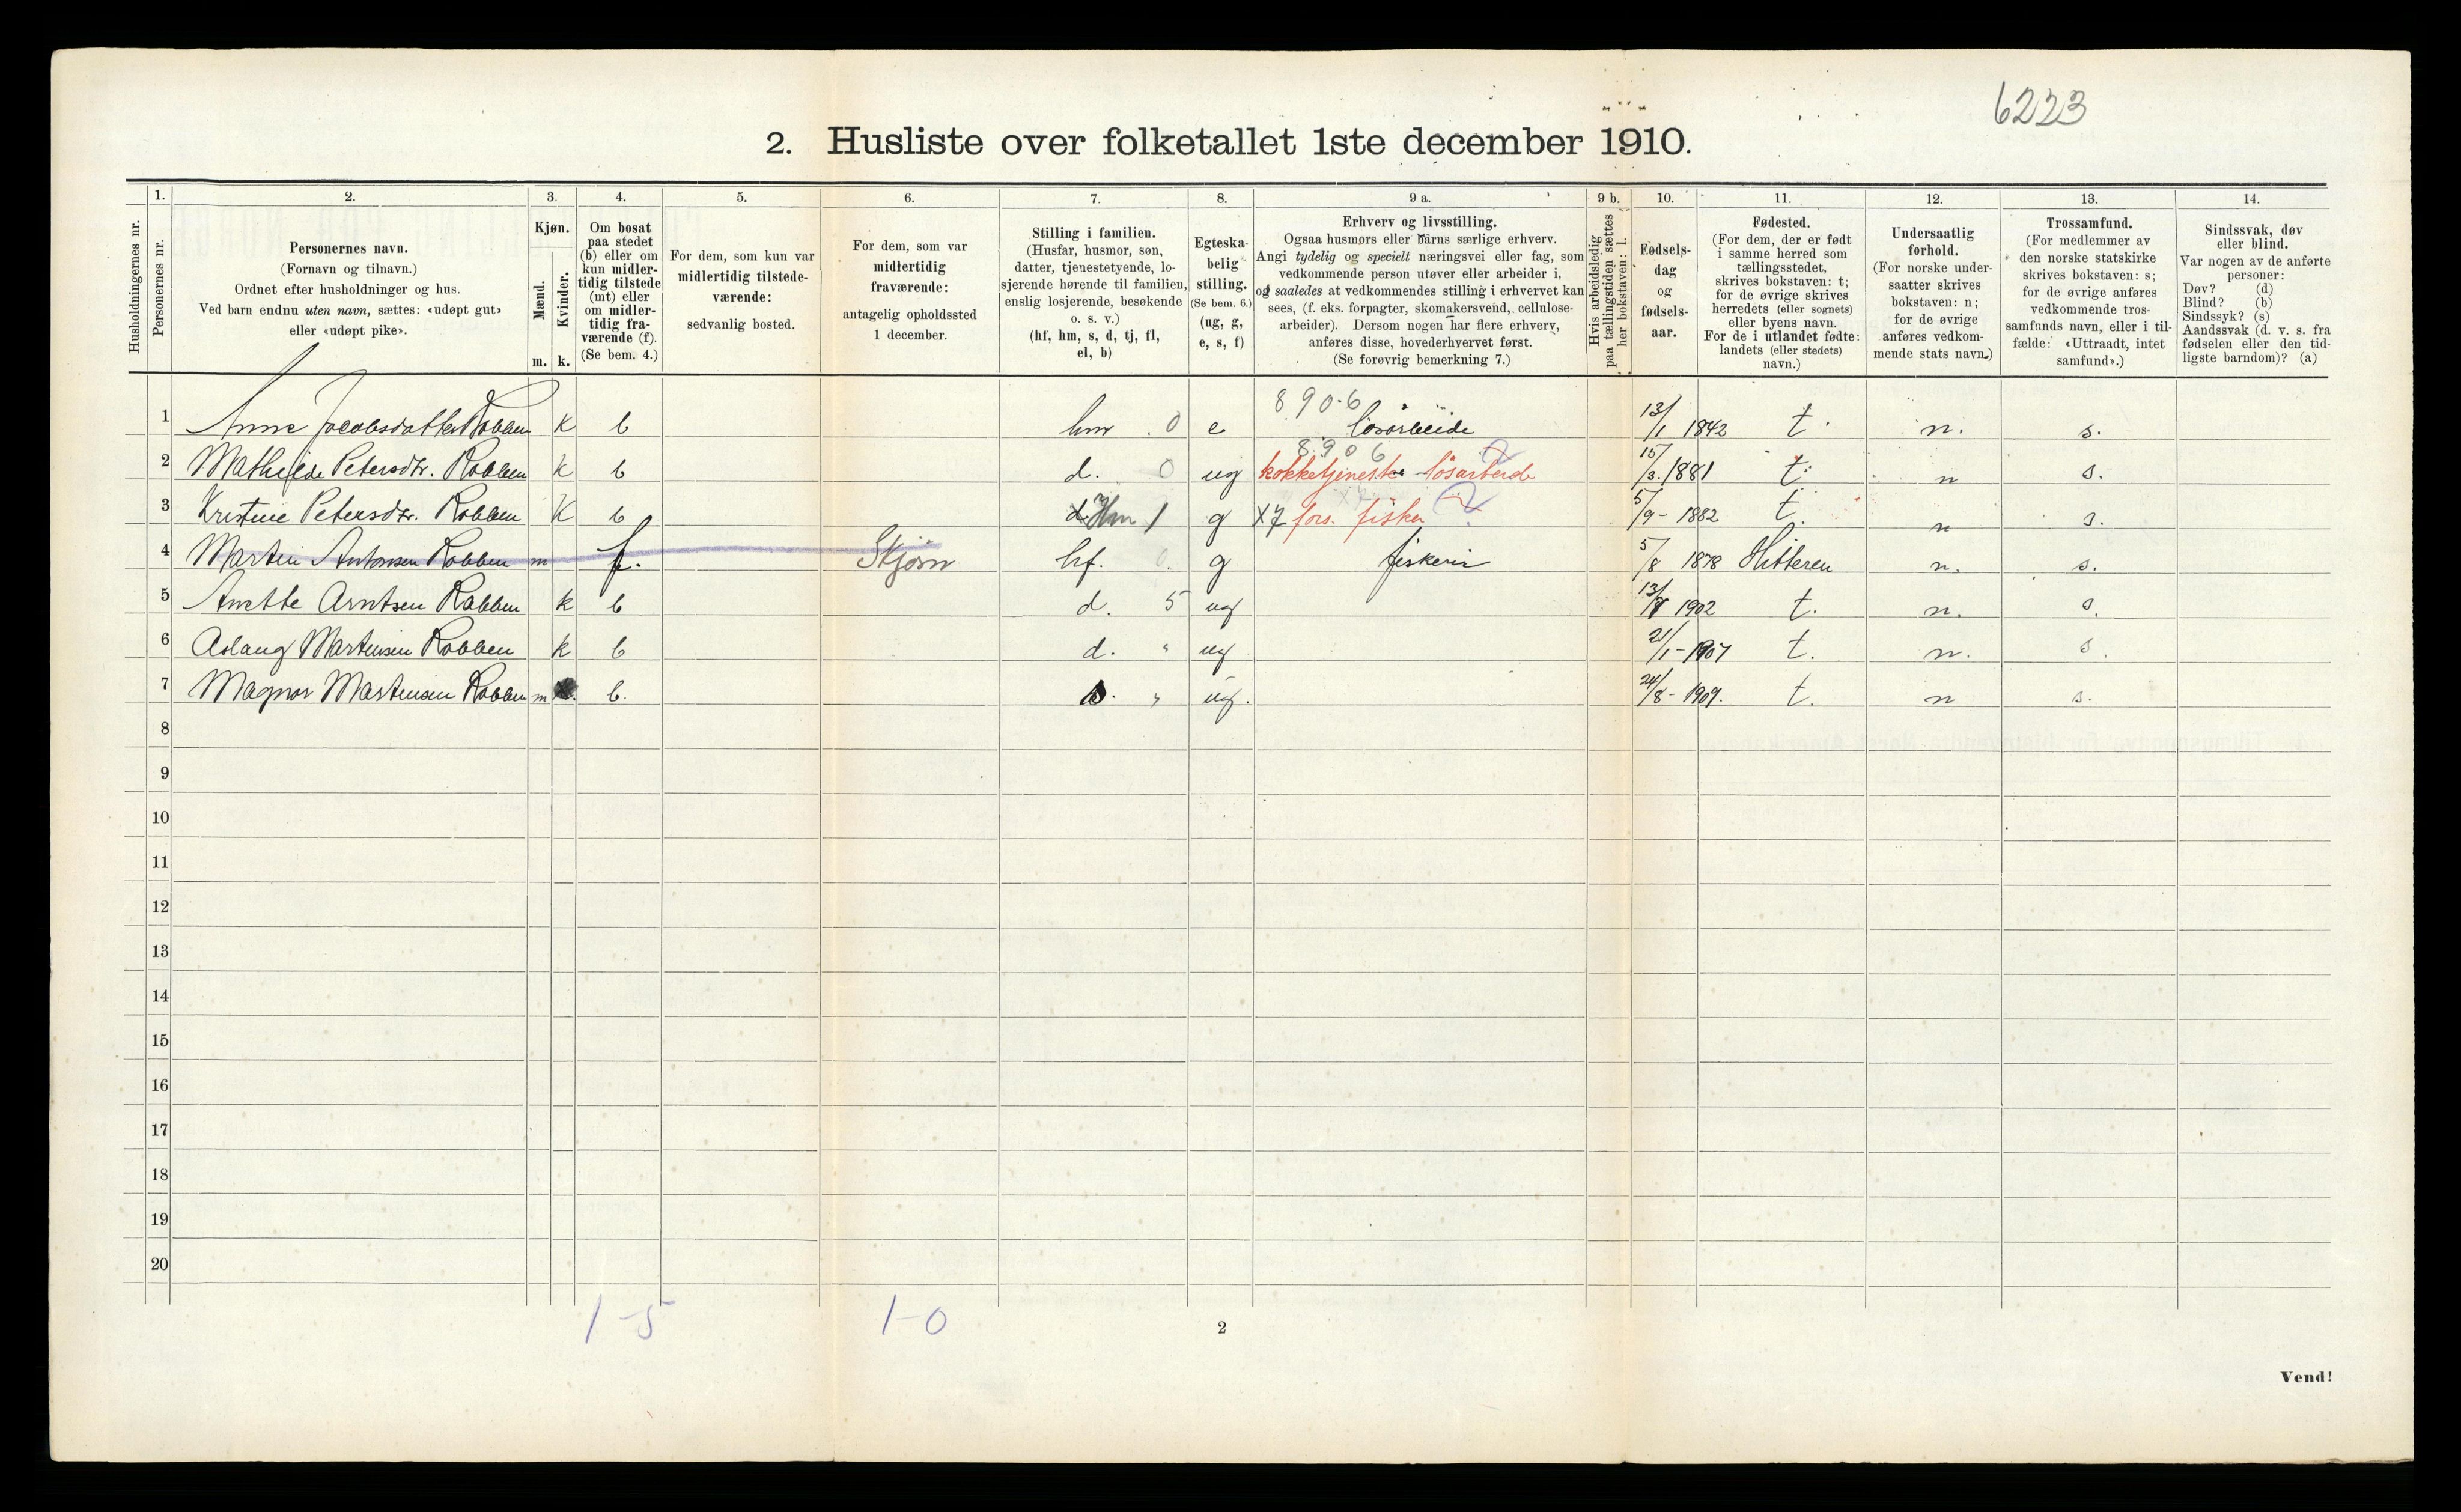 6223
2. Husliste over folketallet 1ste december 1910.
1. 2. 3. 4. 5. 6. 7. 8. 9 a. 9 b. 10. 11. 12. 13. 14.
Husholdningernes nr.
Personernes nr.
Personernes navn.
(Fornavn og tilnavn.)
Ordnet efter husholdninger og hus.
Ved barn endnu uten navn, sættes: «udøpt gut»
eller «udøpt pike».
Kjøn.
Mænd.
Kvinder.
m. k.
Om bosat
paa stedet
(b) eller om
kun midler-
tidig tilstede
(mt) eller
om midler-
tidig fra-
værende (f).
(Se bem. 4.)
For dem, som kun var
midlertidig tilstede-
værende:
sedvanlig bosted.
For dem, som var
midlertidig
fraværende:
antagelig opholdssted
1 december.
Stilling i familien.
(Husfar, husmor, søn,
datter, tjenestetyende, lo-
sjerende hørende til familien,
enslig losjerende, besøkende
o. s. v.)
(hf, hm, s, d, tj, fl,
el, b)
Egteska-
belig
stilling.
(Se bem. 6.)
(ug, g,
e, s, f)
Erhverv og livsstilling.
Ogsaa husmors eller barns særlige erhverv.
Angi tydelig og specielt næringsvei eller fag, som
vedkommende person utøver eller arbeider i,
og saaledes at vedkommendes stilling i erhvervet kan
sees, (f. eks. forpagter, skomakersvend, cellulose-
arbeider). Dersom nogen har flere erhverv,
anføres disse, hovederhvervet først.
(Se forøvrig bemerkning 7.)
Hvis arbeidsledig
paa tællingstiden sættes
her bokstaven: l.
Fødsels-
dag
og
fødsels-
aar.
Fødested.
(For dem, der er født
i samme herred som
tællingsstedet,
skrives bokstaven: t;
for de øvrige skrives
herredets (eller sognets)
eller byens navn.
For de i utlandet fødte:
landets (eller stedets)
navn.)
Undersaatlig
forhold.
(For norske under-
saatter skrives
bokstaven: n;
for de øvrige
anføres vedkom-
mende stats navn.)
Trossamfund.
(For medlemmer av
den norske statskirke
skrives bokstaven: s;
for de øvrige anføres
vedkommende tros-
samfunds navn, eller i til-
fælde: «Uttraadt, intet
samfund».)
Sindssvak, døv
eller blind.
Var nogen av de anførte
personer:
Døv? (d)
Blind? (b)
Sindssyk? (s)
Aandssvak (d. v. s. fra
fødselen eller den tid-
ligste barndom)? (a)
8906
1 Anne Jacobsdatter Robben k b hm 0 e løsarbeide 13/1 1842 t. n. s.
8906
2 Mathilde Petersdtr. Robben k b d. 0 ug kokketjeneste løsarbeide 15/3 1881 t. n s.
3 Kristine Petersdtr. Robben k b d Hm 1 g X7 fors. fisker 5/9 - 1882 t. n s.
4 Martin Antonsen Robben m f. Skjørn hf. 0. g fiskeri 5/8 1878 Hitteren n. s.
5 Anette Arntsen Robben k b d. 5 ug 13/8 1902 t. n. s.
6 Aslaug Martinsen Robben k b d. " ug 21/1 - 1907 t. n. s.
7 Magnor Martinsen Robben m b. s. " ug. 24/8 - 1909. t. n s.
8
9
10
11
12
13
14
15
16
17
18
19
20
1-5 1-0
2
Vend!